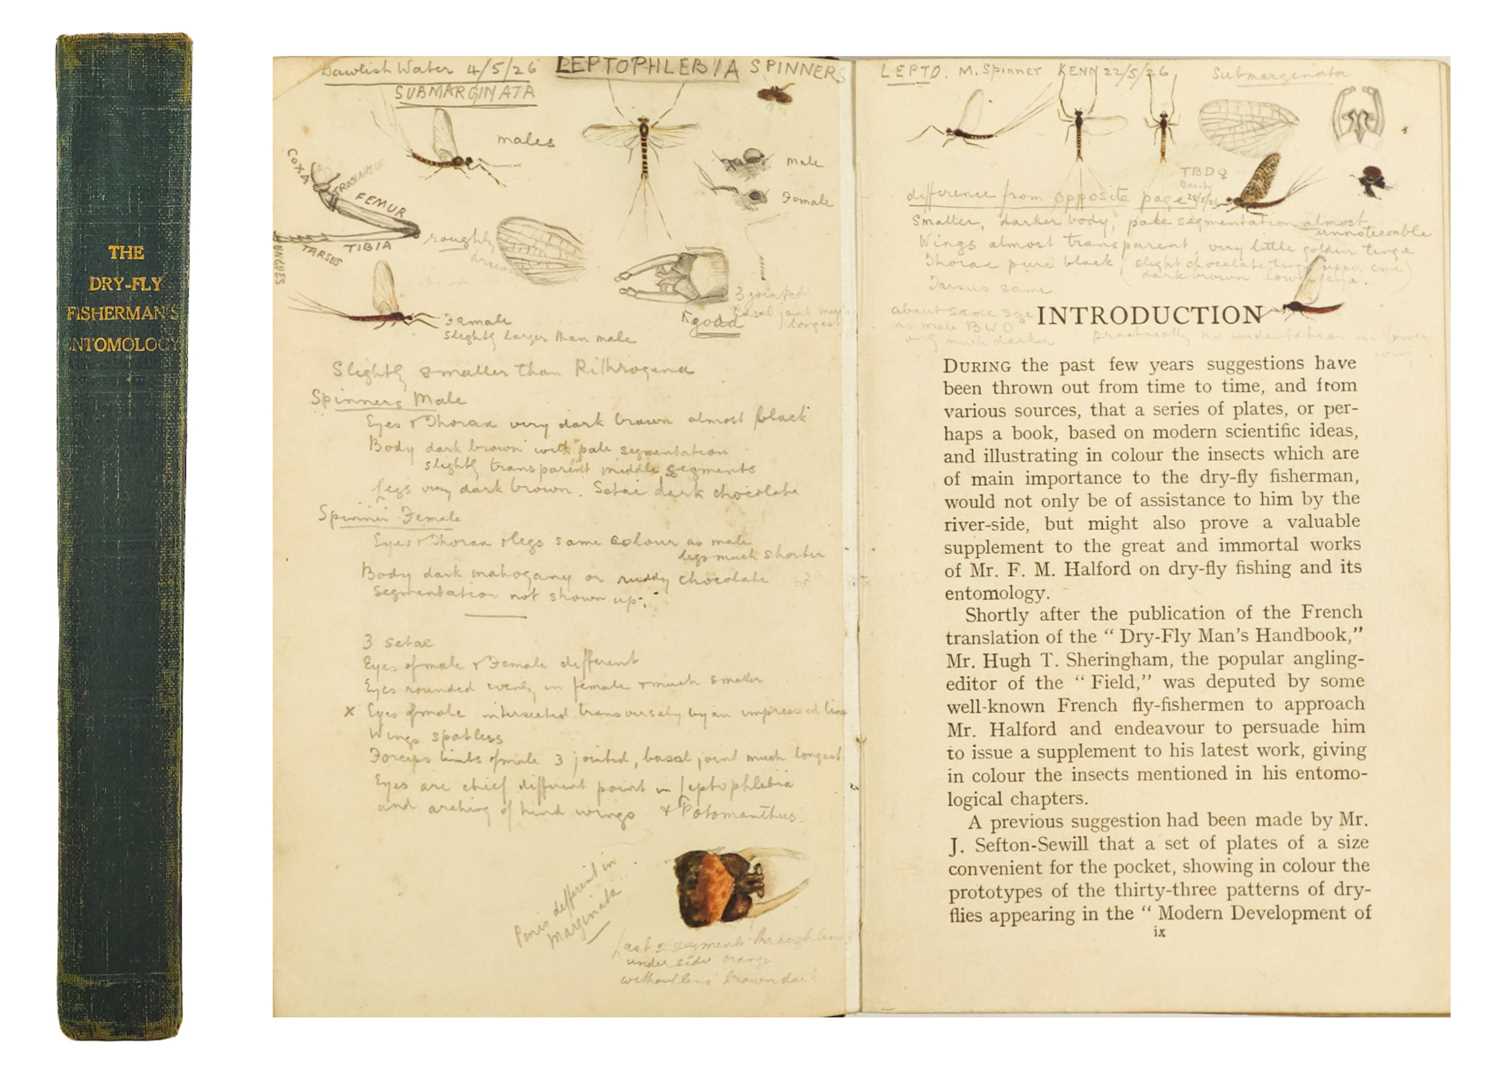 THE
DRY-FLY
FISHERMAN'S
ENTOMOLOGY
Dawlish Water 4/5/26 LEPTOPHLEBIA SPINNERS
SUBMARGINATA
males
male
Female
COXA
TROCHANTER
FEMUR
TIBIA
TARSUS
UNGUES
roughly
drawn
3 jointed
basal joint much
longest
good
Female
Slightly larger than male
Slightly smaller than Rithrogena
Spinners Male
Eyes & Thorax very dark brown almost black
Body dark brown with pale segmentation
slightly transparent middle segments
legs very dark brown. Setae dark chocolate
Spinner Female
Eyes & Thorax & legs same colour as male
legs much shorter
Body dark mahogany or ruddy chocolate
Segmentation not shown up.
3 setae
Eyes of male & Female different
Eyes rounded evenly in female & much smaller
x Eyes of male intersected transversely by an impressed line
Wings spotless
Forceps limbs of male 3 jointed, basal joint much longest
Eyes are chief different point in leptophlebia
and arching of hind wings & Potomanthus.
Penis different in
marginata
last segments through lens
under side orange
without lens brown dark
LEPTO. M. Spinner KENN 22/5/26 Submarginata
TBD ♀
difference from opposite page
Smaller, darker body, pale segmentation almost
unnoticeable
Wings almost transparent very little golden tinge
Thorax pure black (slight chocolate tinge
dark brown
Tarsus same
about same size
as male BWO
very much darker
INTRODUCTION
DURING the past few years suggestions have
been thrown out from time to time, and from
various sources, that a series of plates, or per-
haps a book, based on modern scientific ideas,
and illustrating in colour the insects which are
of main importance to the dry-fly fisherman,
would not only be of assistance to him by the
river-side, but might also prove a valuable
supplement to the great and immortal works
of Mr. F. M. Halford on dry-fly fishing and its
entomology.
Shortly after the publication of the French
translation of the “ Dry-Fly Man's Handbook,”
Mr. Hugh T. Sheringham, the popular angling-
editor of the “ Field,” was deputed by some
well-known French fly-fishermen to approach
Mr. Halford and endeavour to persuade him
to issue a supplement to his latest work, giving
in colour the insects mentioned in his entomo-
logical chapters.
A previous suggestion had been made by Mr.
J. Sefton-Sewill that a set of plates of a size
convenient for the pocket, showing in colour the
prototypes of the thirty-three patterns of dry-
flies appearing in the “ Modern Development of
ix